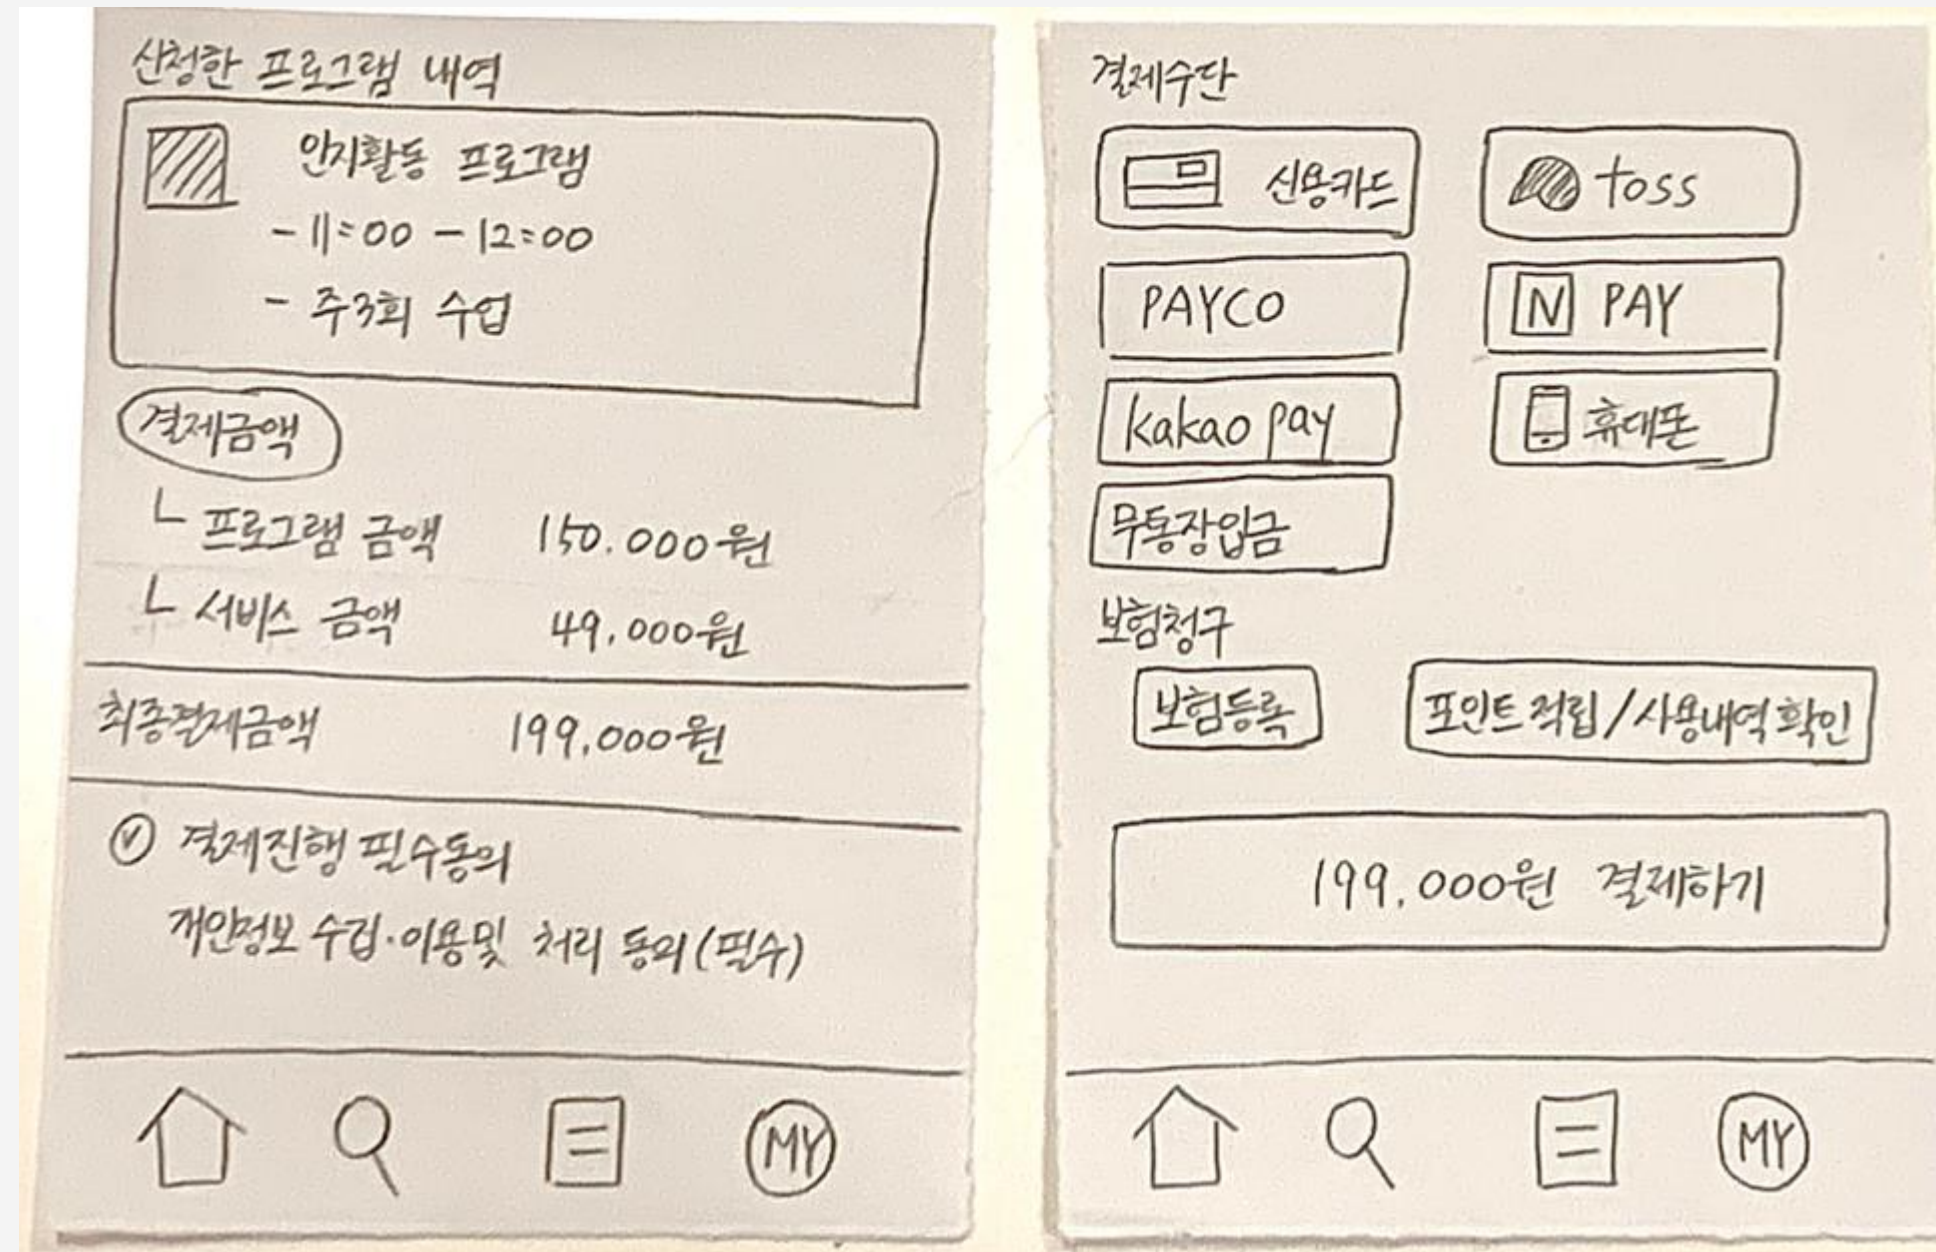 신청한 프로그램 내역
인지활동 프로그램
- 11:00 - 12:00
- 주3회 수업
결제금액
ㄴ 프로그램 금액 150.000원
ㄴ 서비스 금액 49,000원
최종결제금액 199,000원
결제진행 필수동의
개인정보 수집·이용및 처리 동의(필수)
MY
결제수단
신용카드 toss
PAYCO N PAY
kakao pay 휴대폰
무통장입금
보험청구
보험등록 포인트 적립/사용내역 확인
199,000원 결제하기
MY